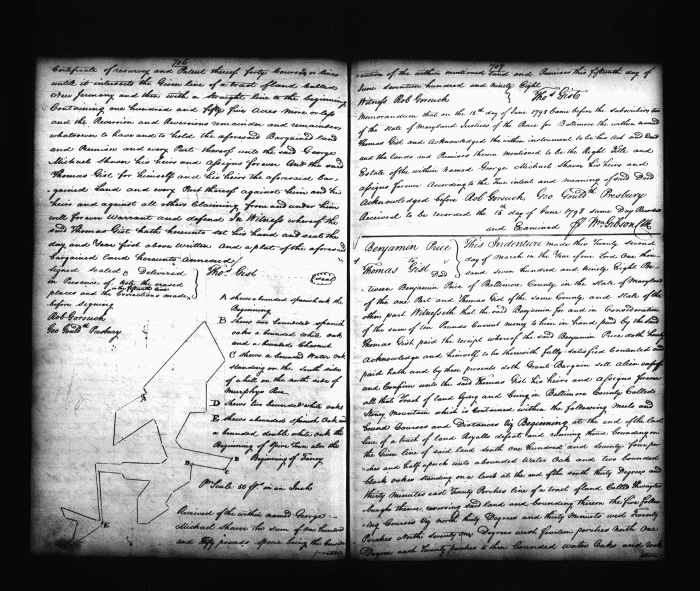 706
Certificate of resurvey and Patent thereof forty Courses or lines
until it intersects the Given line of a tract of land Called
New Germany and then with a straight line to the beginning
Containing one hundred and fifty five Acres more or less
and the Reversion and Reversions remainder and remainders
whatsoever to have and to hold the aforesaid Bargained land
and Premises and every Part thereof unto the said George
Michael Shaver his Heirs and assigns forever And the said
Thomas Gist for himself and his heirs the aforesaid Bar
gained Land and every Part thereof against him and his
heirs and against all others Claiming from and under him
will forever Warrant and defend In Witness whereof the
said Thomas Gist hath hereunto set his hand and seal the
day and Year first above Written and a plat of the aforesaid
bargained land hereunto annexed
signed sealed & Delivered
in Presence of
places and the Corrections made
before signing
Rob Gorsuch
Geo Gould Presbury
Thos. Gist
Seal
A shews a bounded spanish oak the
Beginning
B shews two bounded spanish
oaks a bounded white oak
and a bounded Chesnut
C shews a bounded Water Oak
standing on the south side
of a hill on the north side of
Murphys Run
D shews two bounded white oaks
E shews a bounded spanish Oak and
a bounded double white oak the
Beginning of Spire Town also the
Beginning of Fancy
Pr Scale 50 ps. in an Inch
Received of the within named George
Michael Shaver the sum of One hundred
and fifty pounds specie being the Consid
707
eration of the within mentioned Land and Premises this fifteenth day of
June seventeen hundred and ninety Eight
Witness Rob Gorsuch } Thos. Gist
Memorandum that on the 15th day of June 1798 Came before the subscribers two
of the State of Maryland Justices of the Peace for Baltimore the within named
Thomas Gist and Acknowledged the within instrument to be his Act and Deed
and the lands and Premises therein mentioned to be the Right Title and
Estate of the within named George Michael Shaver his heirs and
assigns forever According to the True intent and meaning of said Deed
Acknowledged before Rob Gorsuch, Geo Gould Presbury
Received to be recorded the 16 day of June 1798 same Day Recorded
and Examined Wm Gibson Clk
Benjamin Price
Thomas Gist
Deed
This Indenture made this Twenty second
day of March in the Year of our Lord One thou
sand seven hundred and Ninety Eight Be
tween Benjamin Price of Baltimore County in the State of Maryland
of the one Part and Thomas Gist of the same County and State of the
other part Witnesseth that the said Benjamin for and in Consideration
of the sum of ten Pounds Current money to him in hand paid by the said
Thomas Gist the receipt whereof the said Benjamin Price doth hereby
Acknowledge and himself to be therewith fully satisfied Contented and
paid hath and by these presents doth Grant Bargain sell alien enfeoff
and Confirm unto the said Thomas Gist his Heirs and Assigns forever
all that Tract of land lying and being in Baltimore County Called
Stoney Mountain which is Contained within the following Meets and
bound Courses and Distances Viz Beginning at the end of the last
line of a tract of land and running thence bounding on
the Given line of said land south One hundred and seventy four per
ches and half a perch unto a bounded Water Oak and two bounded
black oaks standing on a at the end of the south thirty Degrees and
thirty minutes east Twenty Perches line of a tract of land Called
land and bounding thereon the five follow
ing Courses Viz north thirty Degrees and thirty Minutes west Twenty
Perches North seventy One Degrees west fourteen perches North One
Degree east Twenty perches to three bounded Water Oaks and